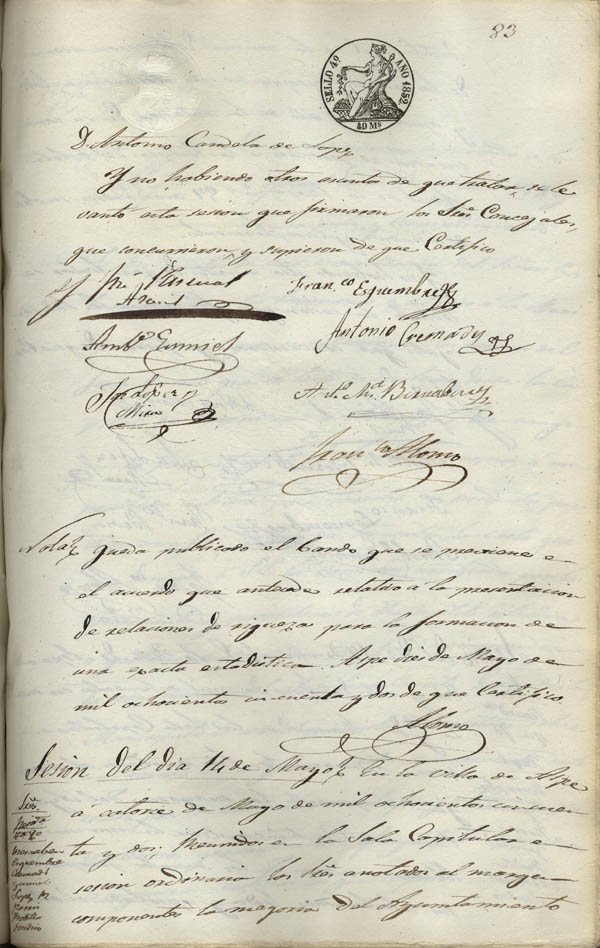 83
SELLO 4º AÑO 1852
40 Ms
D. Antonio Candela de Lopez
Y no habiendo otros asuntos de que tratar, se le
vantó esta sesion que firmaron los Sres Concejales,
que concurrieron, y supieron de que Certifico
Pascual
Franco Esquembre
Antonio Cremades
Ambº Gumiel
Lopez
Miro
Bernabeu
Franco Alonso
Nota
queda publicado el bando que se mencione e
el acuerdo que antecede relatibo a la presentacion
de relaciones de riqueza para la formacion de
una exacta estadistica. Aspe dies de Mayo de
mil ochocientos cincuenta y dos de que Certifico.
Alonso
Sesion del dia 14 de Mayo
En la villa de Aspe
á catorce de Mayo de mil ochocientos cincuen
ta y dos; Reunidos en la Sala Capitular e
sesion ordinaria los Sres anotados al margen
componentes la mayoria del Ayuntamiento
Sres
Bernabeu
Esquembre
Cremades
Gumiel
Lopez